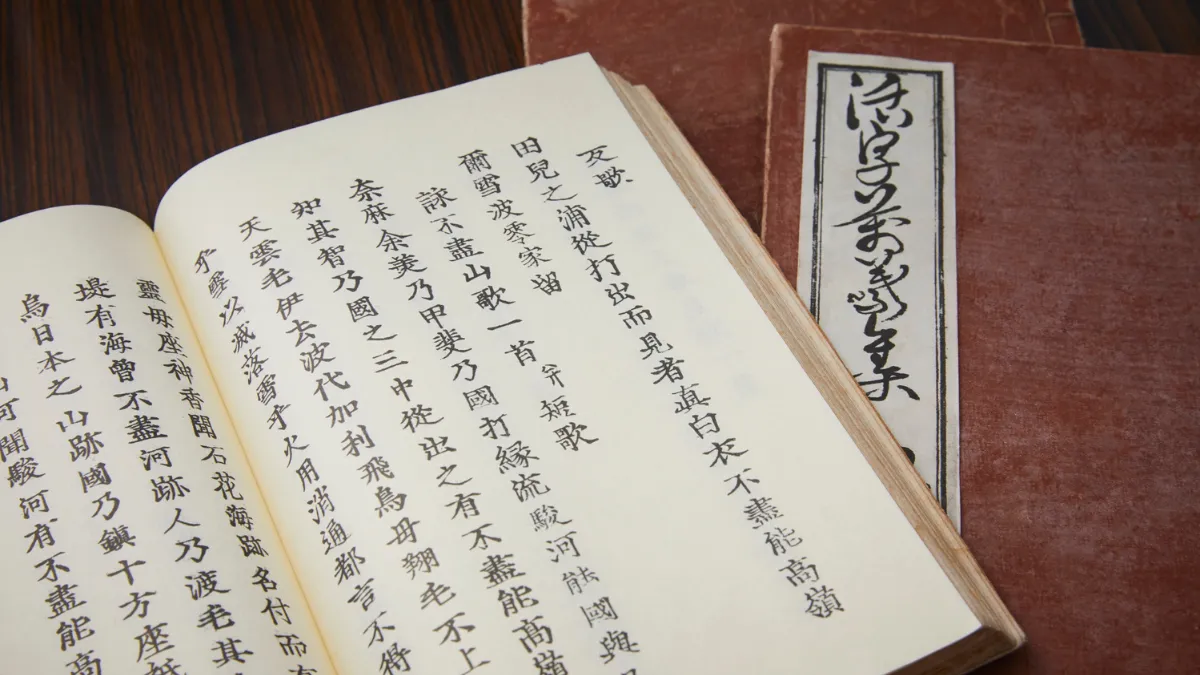 反歌
田兒之浦從打出而見者真白衣不盡能高嶺
爾雪波零家留
詠不盡山歌一首并短歌
奈麻余美乃甲斐乃國打縁流駿河能國與
知其智乃國之三中從出之有不盡能高嶺
天雲毛伊去波代加利飛鳥母翔毛不上
乎雪以滅落雪乎火用消通都言不得
靈母座神香聞石花海跡名付而有
堤有海曾不盡河跡人乃渡毛其
烏日本之山跡國乃鎮十方座祇
山可聞駿河有不盡能高
活字萬葉集